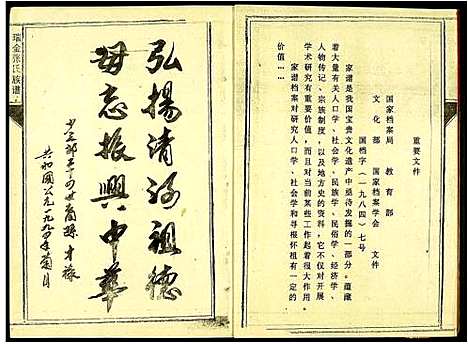 重要文件
国家档案局　教育部
文化部　国家档案学会　文件
国档字（一九八四）七号
家谱是我国宝贵文化遗产中亟待发掘的一部分。蕴藏
着大量有关人口学、社会学、民族学、民俗学、经济学、
人物传记、宗族制度，以及地方史的资料，它不仅对开展
学术研究有重要价值，而且对当前某些工作起着很大作用。
家谱档案对研究人口学、社会学和寻根怀祖有一定的
价值……
瑞金张氏族谱
弘揚清河祖德
毋忘振興中華
世裔孫
共和國公元一九九四年菊月